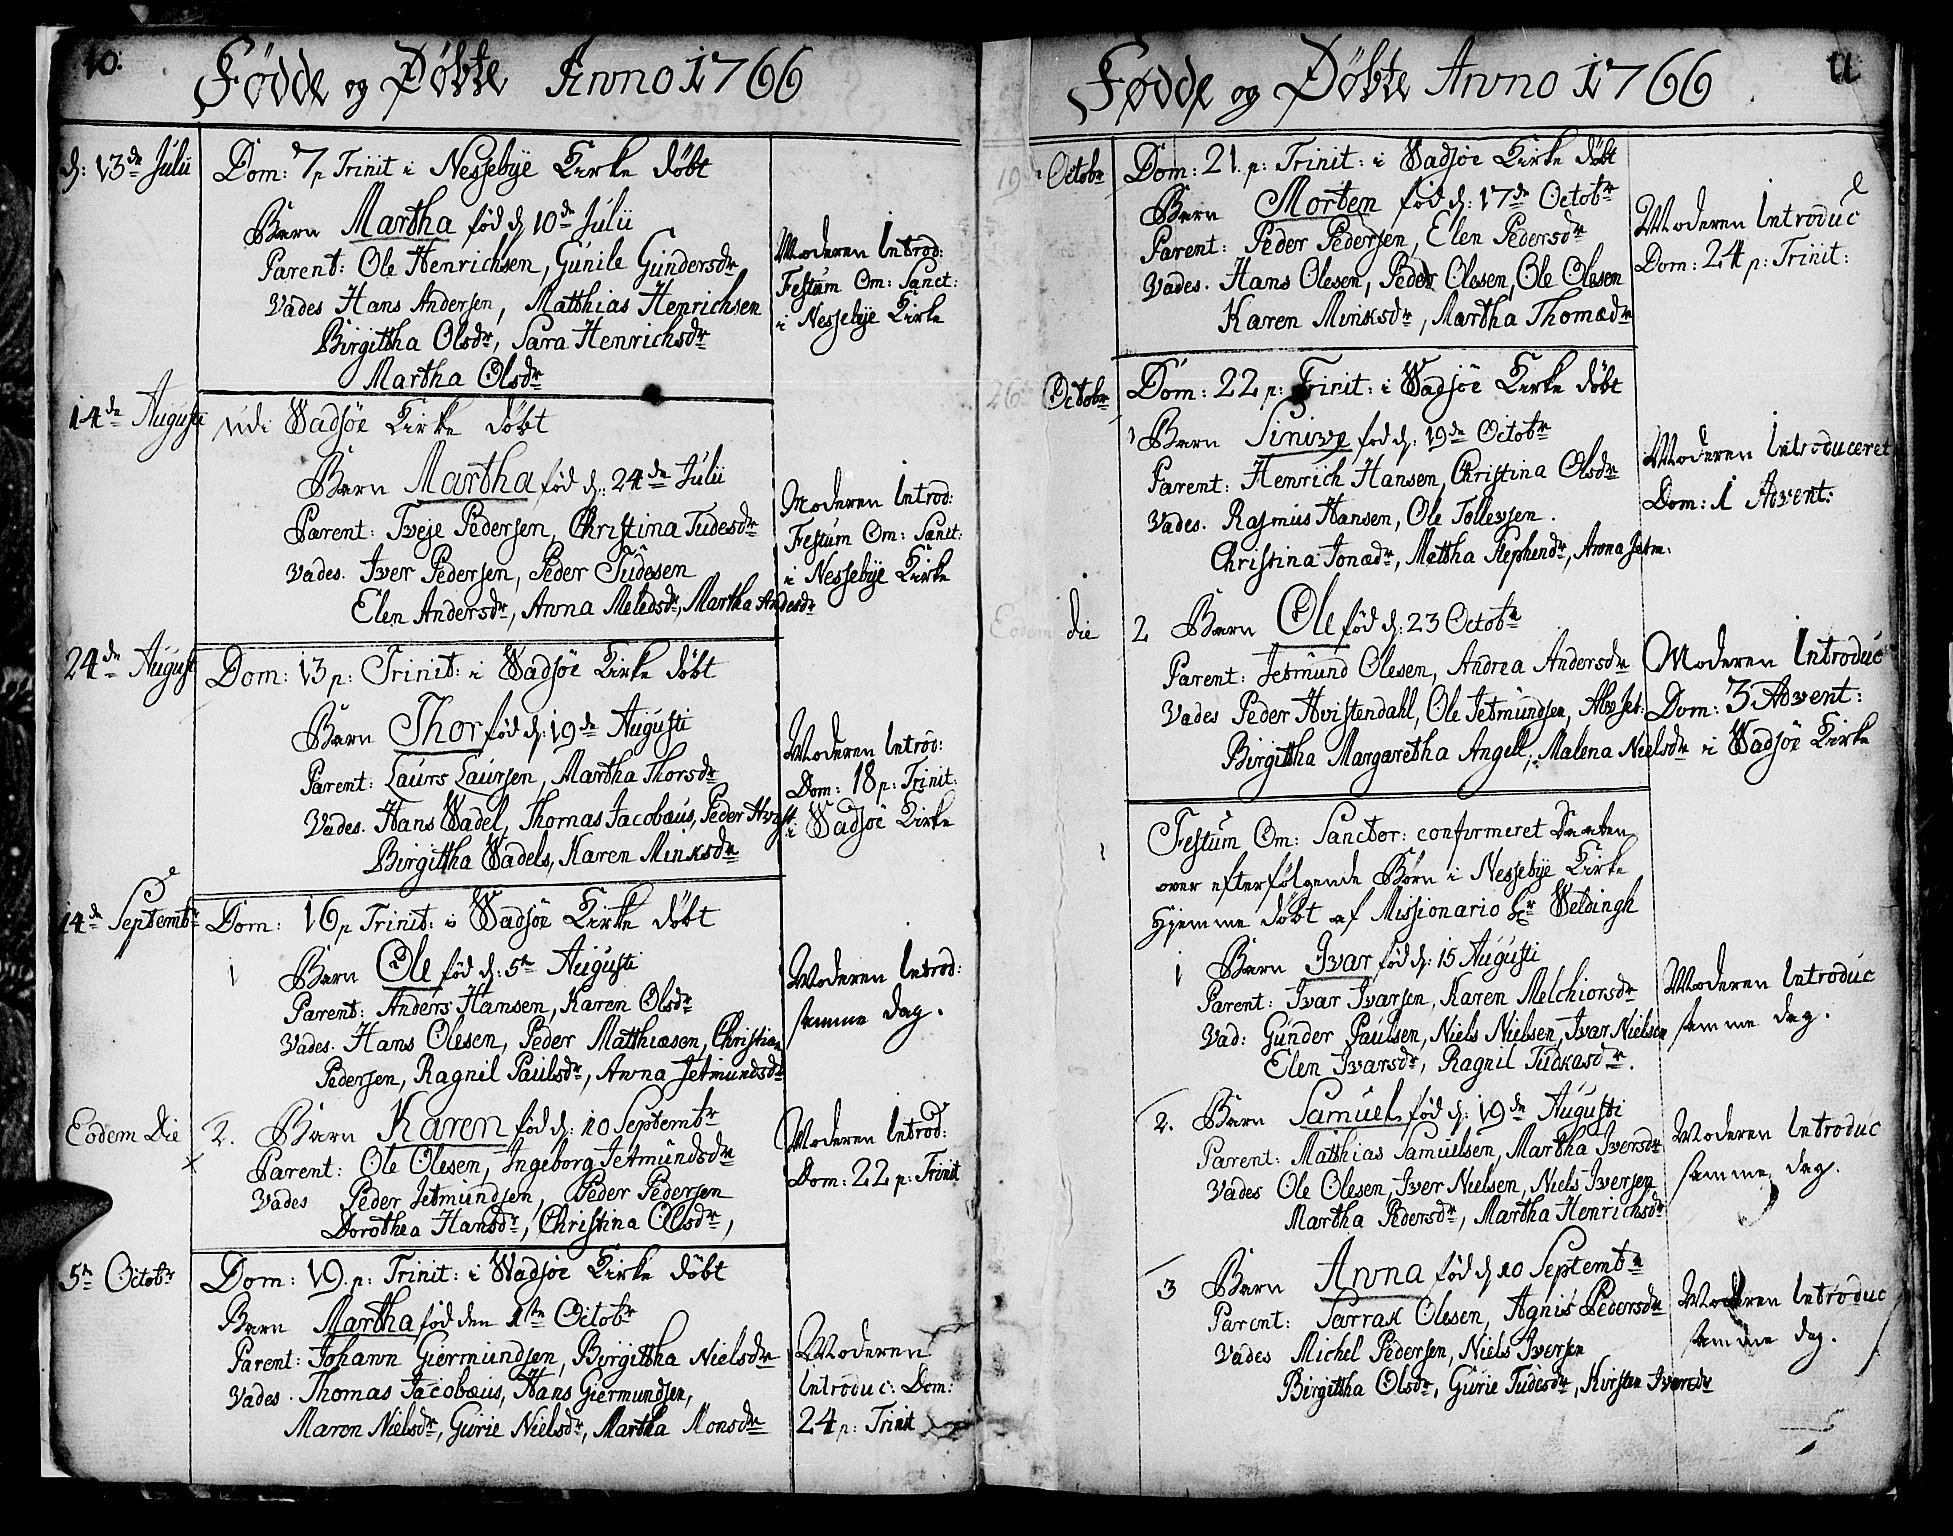 10:
Fødde og Døbte Anno 1766
d: 13de Julii
Dom: 7 p Trinit i Nessebÿe Kirke døbt
Barn Martha fød d 10de Julii
Parent: Ole Henrichsen, Gunile Gundersdr
Vades Hans Andersen, Matthias Henrichsen
Birgittha Olsdr, Sara Henrichsdr
Martha Olsdr
Moderen Introd:
Festum Om: Sanct:
i Nessebÿe Kirke
14de Augusti
udi Wadsöe Kirke døbt
Barn Martha fød d: 24de Julii
Parent: Iveje Pedersen, Christina Tudesdr
Vades. Iver Pedersen, Peder Tudesen
Elen Andersdr, Anna Meledsdr, Martha Andesdr
Moderen Introd:
Festum Om: Sanct:
i Nessebÿe Kirke
24de August
Dom: 13 p: Trinit: i Wadsöe Kirke døbt
Barn Thor fød d: 19de Augusti
Parent: Laurs Laursen, Martha Thorsdr
Vades. Hans Wadel, Thomas Jacobæus, Peder Hvist
Birgittha Wadels, Karen Minksdr
Moderen Introd:
Dom: 18 p: Trinit:
i Wadsöe Kirke
14de Septembr
Dom: 16 p Trinit: i Wadsöe Kirke døbt
1 Barn Ole fød d: 5te Augusti
Parent: Anders Hansen, Karen Olsdr
Vades. Hans Olesen, Peder Matthiæsen, Christian
Pedersen, Ragnil Paulsdr, Anna Jetmundsdr
Moderen Introd:
samme dag.
Eodem Die
2. Barn Karen fød d: 10 Septembr
Parent: Ole Olesen, Ingeborg Jetmundsdr
Vades Peder Jetmundsen, Peder Pedersen
Dorothea Hansdr, Christina Olsdr,
Moderen Introd:
Dom: 22 p: Trinit
5te Octobr
Dom: 19. p: Trinit: i Wadsöe Kirke døbt
Barn Martha fød den 1ste Octobr
Parent: Johann Giermundsen, Birgittha Nielsdr
Vades. Thomas Jacobæus, Hans Giermundsen,
Maron Nielsdr, Gurie Nielsdr, Martha Monsdr
Moderen
Introduc: Dom:
24 p: Trinit
11
Fødde og Døbte Anno 1766
19 Octobr
Dom: 21. p: Trinit: i Wadsöe Kirke døbt
Barn Morten fød d: 17de Octobr
Parent: Peder Pedersen, Elen Pedersdr
Vades. Hans Olesen, Peder Olesen, Ole Olesen
Karen Minksdr, Martha Thomædr
Moderen Introduc
Dom: 24 p: Trinit:
26 Octobr
Dom: 22 p: Trinit: i Wadsöe Kirke døbt
1 Barn Sinive fød d: 19de Octobr
Parent: Henrich Hansen, Christina Olsdr
Vades. Rasmus Hansen, Ole Tollevsen.
Christina Jonædr, Mettha Stephendr, Anna Jetm:
Moderen Introduceret
Dom: 1 Advent:
Eodem die
2 Barn Ole fød d: 23 Octobr
Parent: Jetmund Olesen, Andrea Andersdr
Vades Peder Hvistendahl, Ole Jetmundsen, Alv Jet:
Birgittha Margaretha Angell, Malena Nielsdr
Moderen Introduc
Dom: 3 Advent:
i Wadsöe Kirke
Festum Om: Sanctor: confirmeret Daaben
over efterfølgende Børn i Nessebÿe Kirke
hjemme døbt af Missionario Hr Weldingh
1 Barn Ivar fød d: 15 Augusti
Parent: Ivar Ivarsen, Karen Melchiorsdr
Vad: Gunder Paulsen, Niels Nielsen, Ivar Nielsen
Elen Ivarsdr, Ragnil Tudkasdr.
Moderen Introduc
samme dag.
2. Barn Samuel fød d: 19de Augusti
Parent: Matthias Samuelsen, Martha Iversdr
Vades Ole Olesen, Iver Nielsen, Niels Iversen
Martha Pedersdr, Martha Henrichsdr
Moderen Introduc
samme dag.
3 Barn Anna fød d 10 Septembr
Parent: Sarrak Olesen, Agnis Pedersdr
Vades Michel Pedersen, Niels Iversen
Birgittha Olsdr, Gurie Tudesdr, Kirsten Iversdr
Moderen Introduc
samme dag.